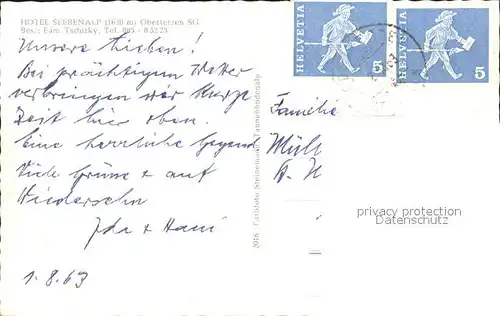 HOTEL SEEBENALP (1630 m) Oberterzen SG
Bes.: Fam. Tschirky, Tel. 085 - 8 52 23
Unsere Lieben!
Bei prächtigem Wetter
verbringen wir kurze
Zeit hier oben.
Eine herrliche Gegend
Viele Grüsse + auf
Wiedersehn
Ida + Hans
1.8.63
2016 Cariphoto Steinemann, Tannenbodenalp
HELVETIA 5
HELVETIA 5
Familie
privacy protection
Datenschutz